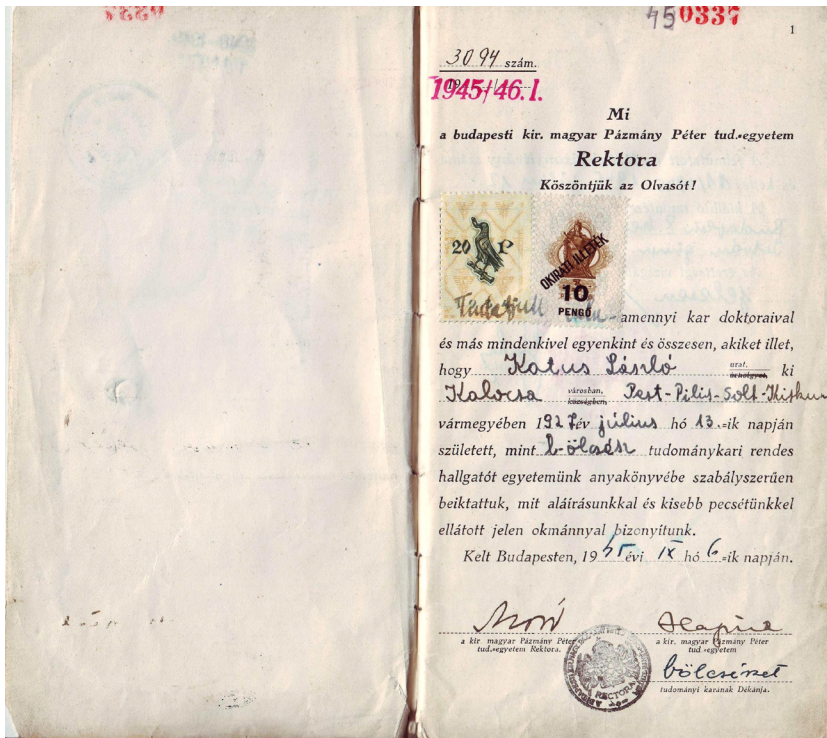 45 0337
1
3094 szám.
1945/46.I.
Mi
a budapesti kir. magyar Pázmány Péter tud.-egyetem
Rektora
Köszöntjük az Olvasót!
20 P
OKIRATI ILLETÉK
10
PENGŐ
Tudatjuk amennyi kar doktoraival
és más mindenkivel egyenkint és összesen, akiket illet,
hogy Katus László urat, ki
Kalocsa városban, községben, Pest-Pilis-Solt-Kiskun
vármegyében 1927 év július hó 13.-ik napján
született, mint bölcsész tudománykari rendes
hallgatót egyetemünk anyakönyvébe szabályszerűen
beiktattuk, mit aláírásunkkal és kisebb pecsétünkkel
ellátott jelen okmánnyal bizonyítunk.
Kelt Budapesten, 1945 évi IX hó 6-ik napján.
a kir. magyar Pázmány Péter
tud.-egyetem Rektora.
a kir. magyar Pázmány Péter
tud.-egyetem
bölcsészet
tudományi karának Dékánja.